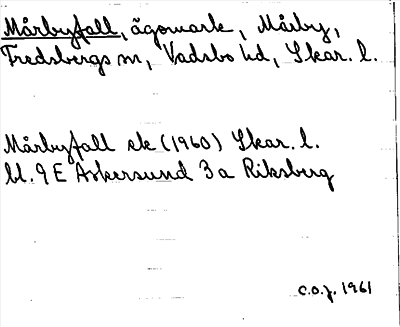 Mårbyfall, ägomark, Mårby,
Fredsbergs sn, Vadsbo hd, Skar. l.
Mårbyfall ek (1960) Skar. l.
bl. 9 E Askersund 3 a Riksberg
C.O.J. 1961